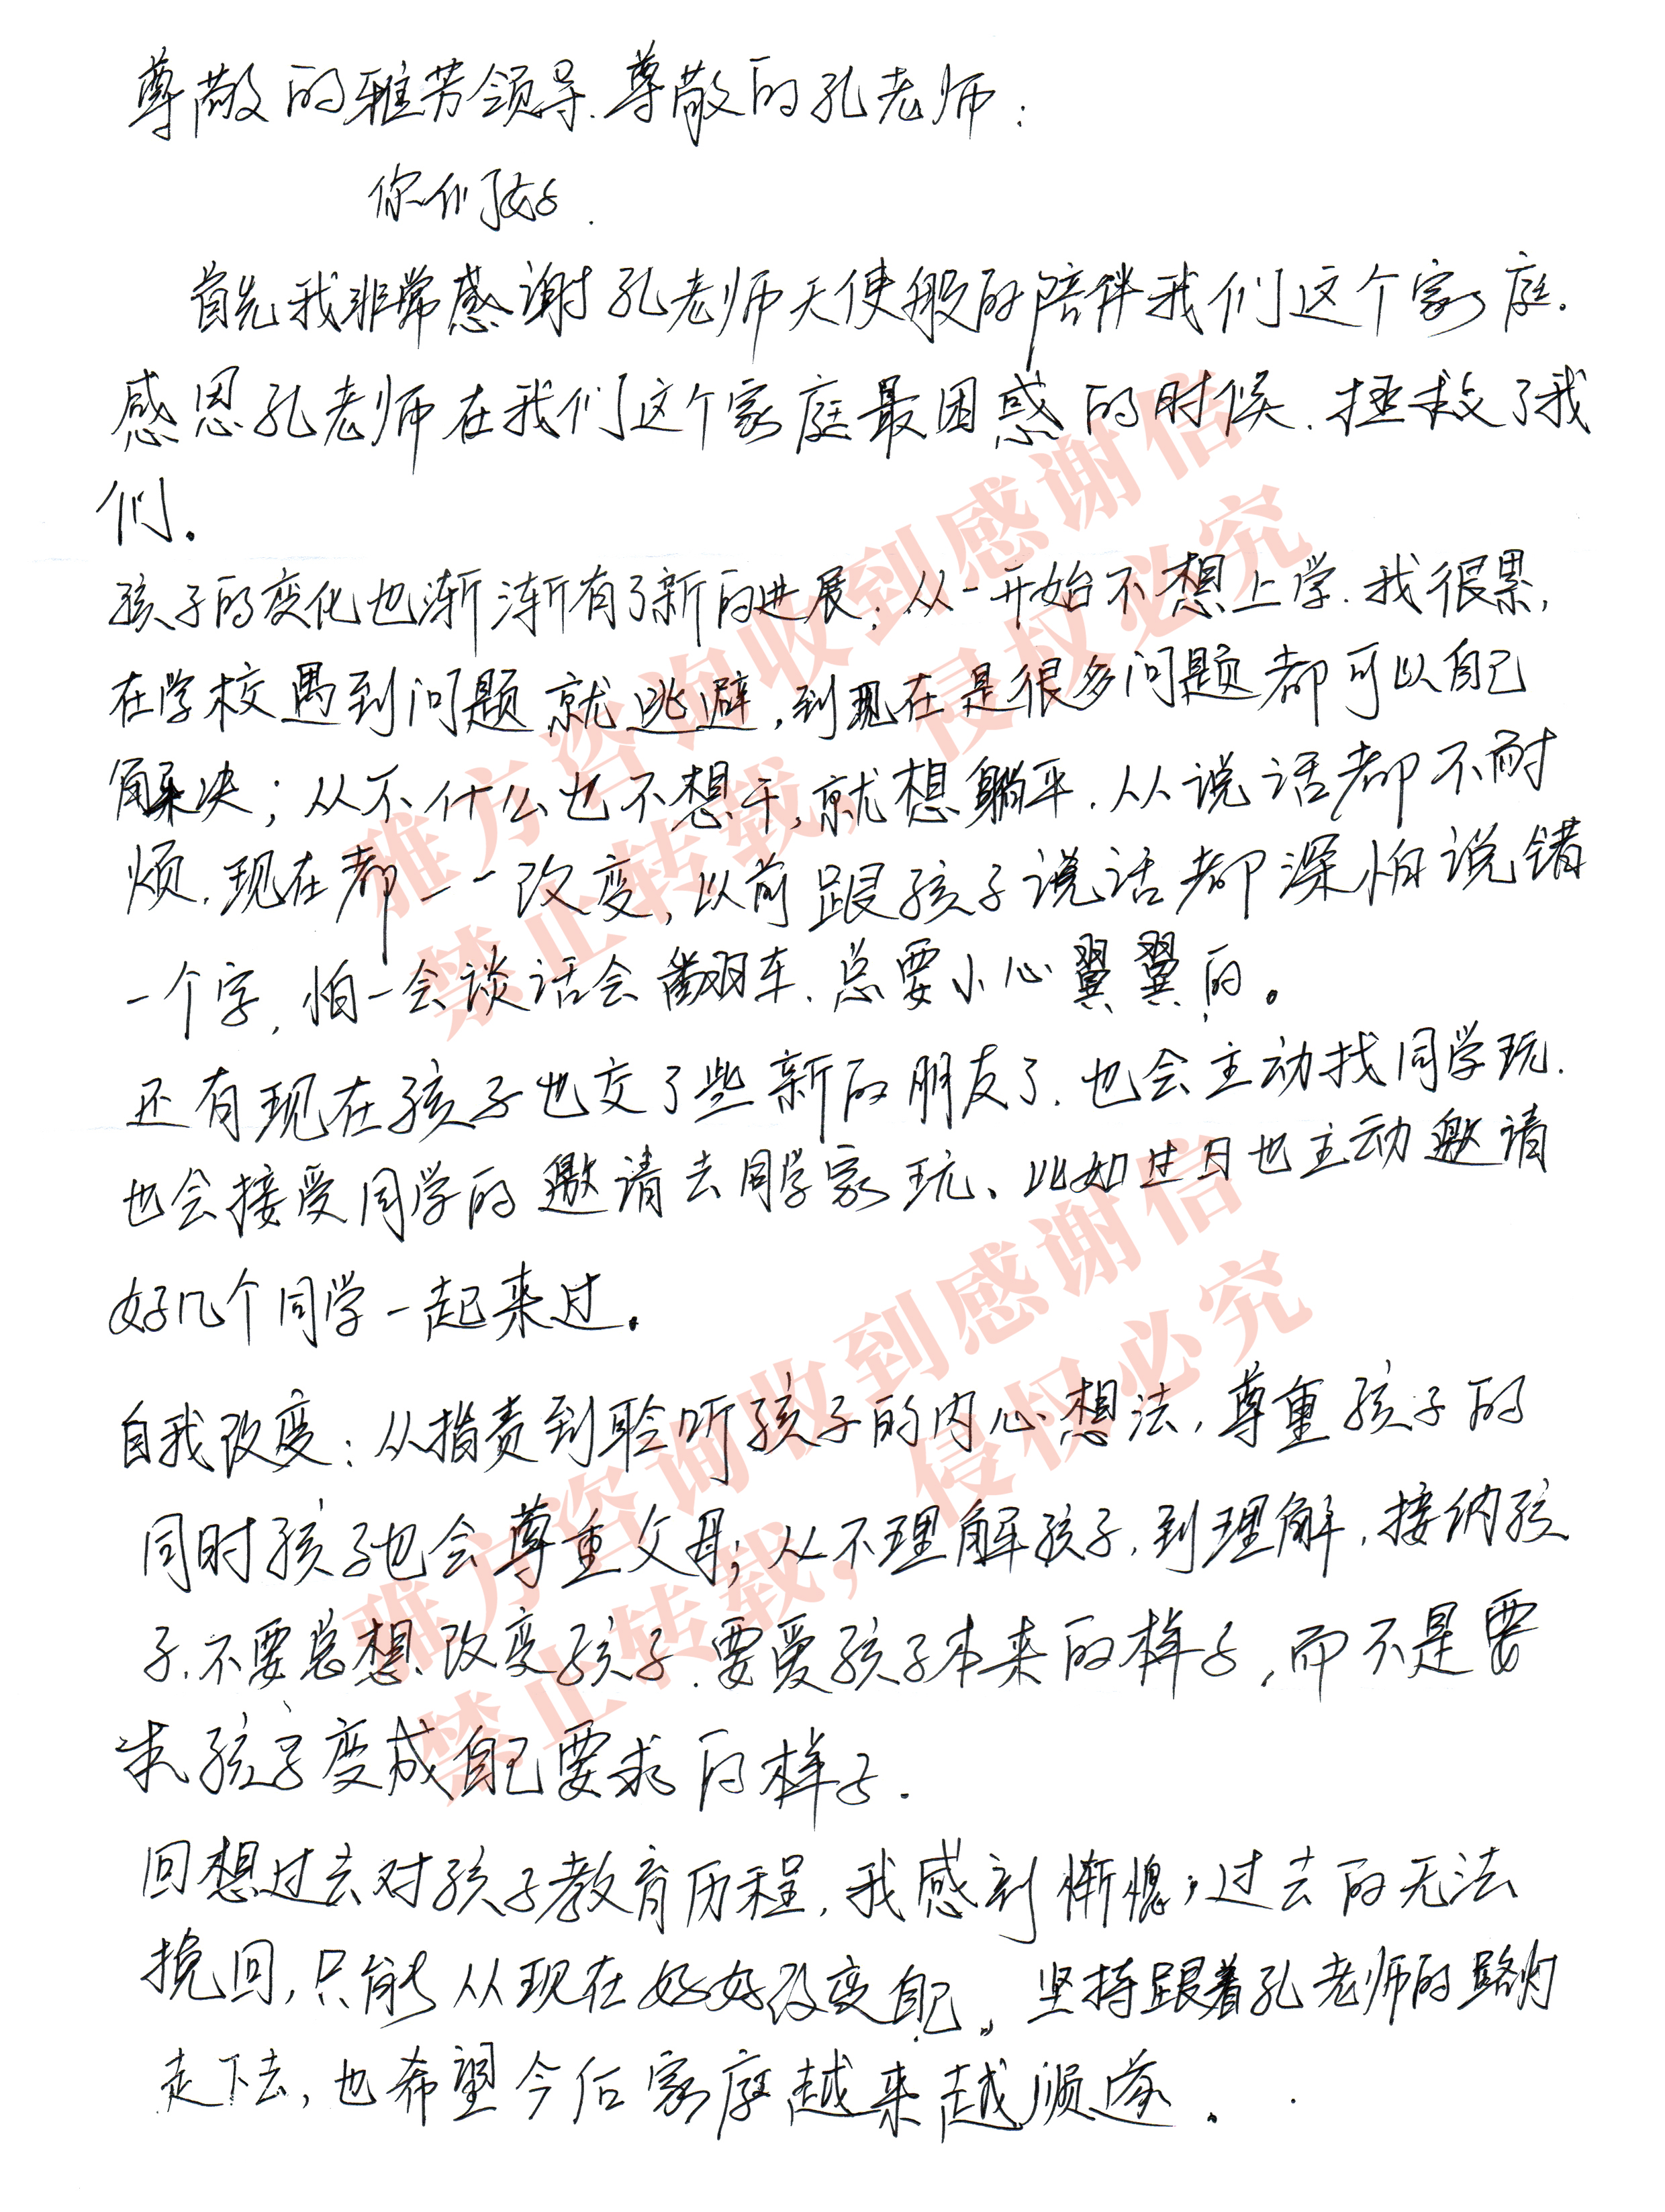 尊敬的雅芳领导.尊敬的孔老师:
你们好.
首先我非常感谢孔老师天使般的陪伴我们这个家庭.
感恩孔老师在我们这个家庭最困惑的时候.拯救了我
们。
孩子的变化也渐渐有了新的进展;从一开始不想上学.我很累,
在学校遇到问题就逃避,到现在是很多问题都可以自己
解决;从不什么也不想干,就想躺平.从说话都不耐
烦.现在都一一改变,以前跟孩子说话都深怕说错
一个字,怕一会谈话会翻车.总要小心翼翼的。
还有现在孩子也交了些新的朋友了.也会主动找同学玩.
也会接受同学的邀请去同学家玩、比如过日也主动邀请
好几个同学一起来过。
自我改变:从指责到聆听孩子的内心想法,尊重孩子的
同时孩子也会尊重父母;从不理解孩子.到理解.接纳孩
子.不要总想改变孩子.要爱孩子本来的样子,而不是要
求孩子变成自己要求的样子.
回想过去对孩子教育历程,我感到惭愧;过去的无法
挽回,只能从现在好好改变自己。坚持跟着孔老师的路灯
走下去,也希望今后家庭越来越顺遂.
雅方咨询收到感谢信
禁止转载,侵权必究
雅方咨询收到感谢信
禁止转载,侵权必究